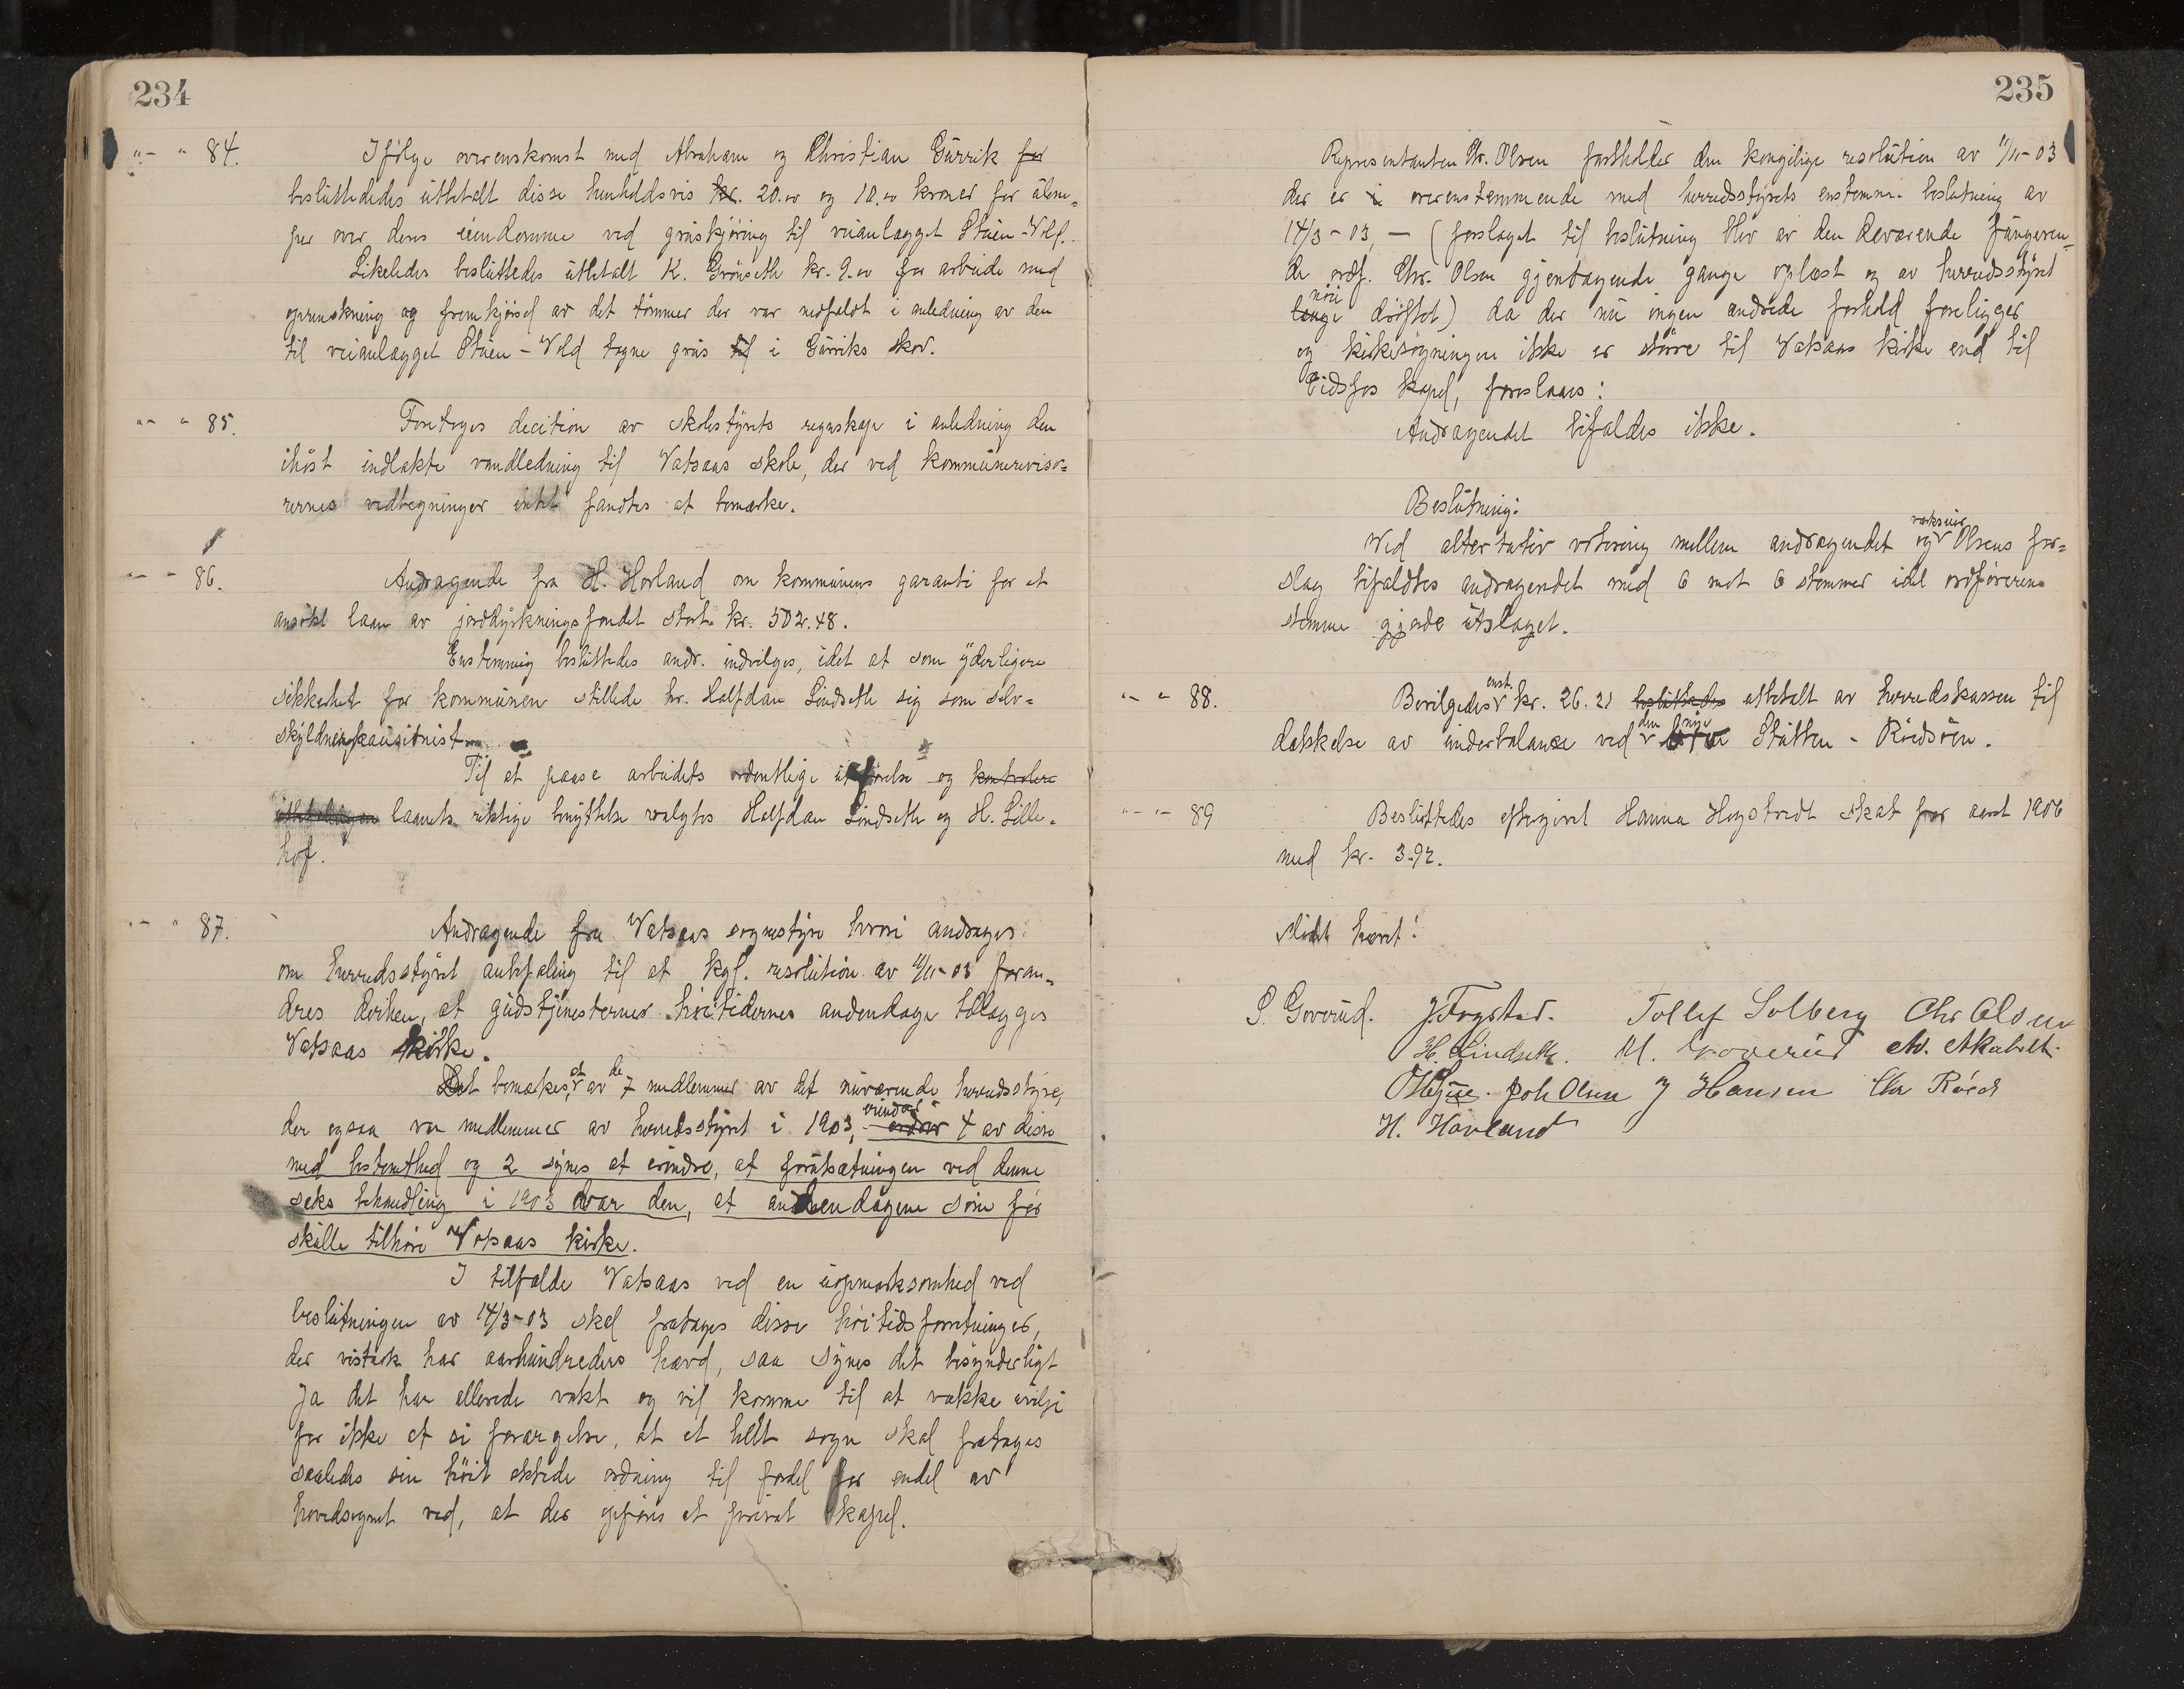 234
"-" 84. Ifølge overenskomst med Abraham og Christian Gurrik for
besluttededes utbetalt disse henholdsvis kr. 20.00 og 10.00 kroner for ulem-
per over deres eiendomme ved gruskjøring til veianlægget Stuen-Vold.
Likeledes besluttedes utbetalt K. Grønseth kr. 9.00 for arbeide med
oprenskning og fremkjørsel av det tømmer der var nedfaldt i anledning av den
til veianlægget Stuen-Vold tagne grus til i Gurriks skov.
"-" 85. Foretoges decition av skolestyrets regnskap i anledning den
ihøst indlakte vandledning til Vatsaas skole, der ved kommunereviso-
rernes vedtegninger intet fandtes at bemærke.
"-" 86. Andragende fra H. Hovland om kommunens garanti for et
ansøkt laan av jorddyrkningsfondet stort kr. 502.48.
Enstemmig besluttedes andr. indvilges, idet at som yderligere
sikkerhet for kommunen stillede hr. Halfdan Lindseth sig som selv-
skyldnerkausionist.
Til at paase arbeidets ordentlige utførelse og kontrolere
laanets riktige benyttelse valgtes Halfdan Lindseth og H. Lille-
hof.
"-" 87. Andragende fra Vatsaas sognestyre hvori andrages
om herredsstyret anbefaling til at kgl. resolution av 11/11-03 foran-
dres derhen, at gudstjenesternes høitidernes andendage tillægges
Vatsaas kirke.
Det bemerkes, at av de 7 medlemmer av det nuværende herredsstyre,
der ogsaa var medlemmer av herredsstyret i 1903, erindrer 4 av disse
med bestemthed og 2 synes at erindre, at forutsætningen ved denne
saks behandling i 1903 var den, at andendagene som før
skulle tilhøre Vatsaas kirke.
I tilfælde Vatsaas ved en uopmerksomhed ved
beslutningen av 14/3-03 skal fratages disse høitidsforretninger,
der vistnok har aarhundreders hævd, saa synes det besynderligt
Ja det har allerede vakt og vil komme til at vække uvilje
for ikke at si forargelse, at et helt sogn skal fratages
saaledes sin høit aktede ordning til fordel for endel av
hovedsognet ved, at der opføres et privat kapel.
235
Representanten Chr. Olsen fastholder den kongelige resolution av 11/11-03
der er i overenstemmende med herredsstyrets enstemm. beslutning av
14/3-03, — (forslaget til beslutning blev av den deværende fungeren-
de ordf. Chr. Olsen gjentagende gange oplæst og av herredsstyret
nøie
lenge drøftet) da der nu ingen andrede forhold foreligger
og kirkesøgningen ikke er større til Vatsaas kirke end til
Eidsfos kapel, foreslaaes:
Andragendet bifaldes ikke.
Beslutning:
Ved altertativ votering mellem andragendet og verkseier Olsens for-
slag bifaldtes andragendet med 6 mot 6 stemmer idet ordførerens
stemme gjorde utslaget.
"-" 88. Bevilgedes enst. kr. 26.21 besluttedes utbetalt av herredskassen til
dækkelse av underbalanse ved den nye Stutten - Rudsøen.
"-" 89 Besluttedes eftergivet Hanna Hogstvedt skat for aaret 1906
med kr. 3.92.
Møtet hævet!
P. Goverud. J. Fogstad. Tollef Solberg Chr Olsen
H. Lindseth. M. Goverud
Joh Olsen J Hansen Chr Røed
H. Hovland